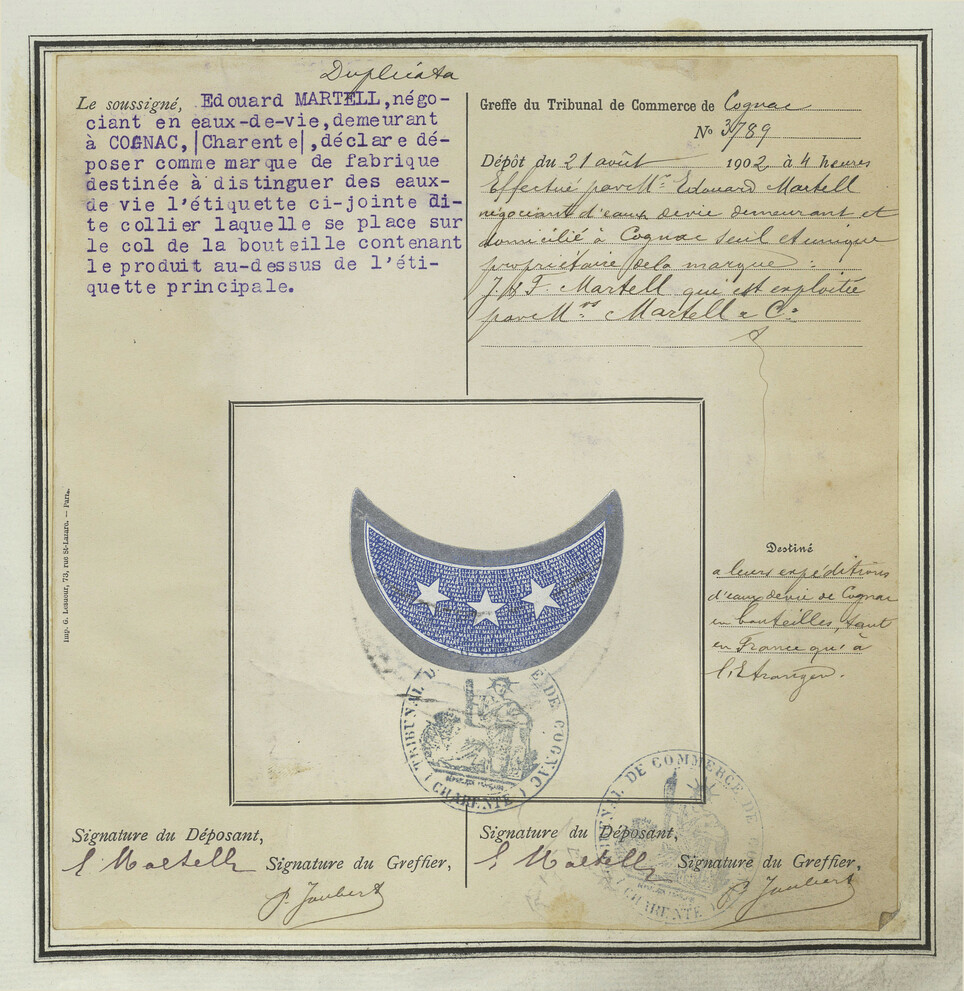 Duplicata
Le soussigné, Edouard MARTELL,négo-
ciant en eaux-de-vie,demeurant
à COGNAC,|Charente|,déclare dé-
poser comme marque de fabrique
destinée à distinguer des eaux-
de vie l'étiquette ci-jointe di-
te collier laquelle se place sur
le col de la bouteille contenant
le produit au-dessus de l'éti-
quette principale.
Greffe du Tribunal de Commerce de Cognac
N° 3789
Dépôt du 21 août 1902 à 4 heures
Effectué par Mr. Edouard Martell
négociant d'eaux devie demeurant et
domicilié à Cognac seul et unique
propriétaire dela marque :
J. & F. Martell qui est exploitée
par Mrs Martell & Co
Imp. G. Lesueur, 73, rue St-Lazare. — Paris.
Destiné
a leurs expéditions
d'eaux devie de Cognac
en bouteilles, tant
en France qu'à
l'Etranger.
TRIBUNAL DE COMMERCE DE COGNAC
(CHARENTE)
TRIBUNAL DE COMMERCE DE
(CHARENTE)
Signature du Déposant,
E Martell
Signature du Greffier,
P. Joubert
Signature du Déposant,
E Martell
Signature du Greffier,
P. Joubert